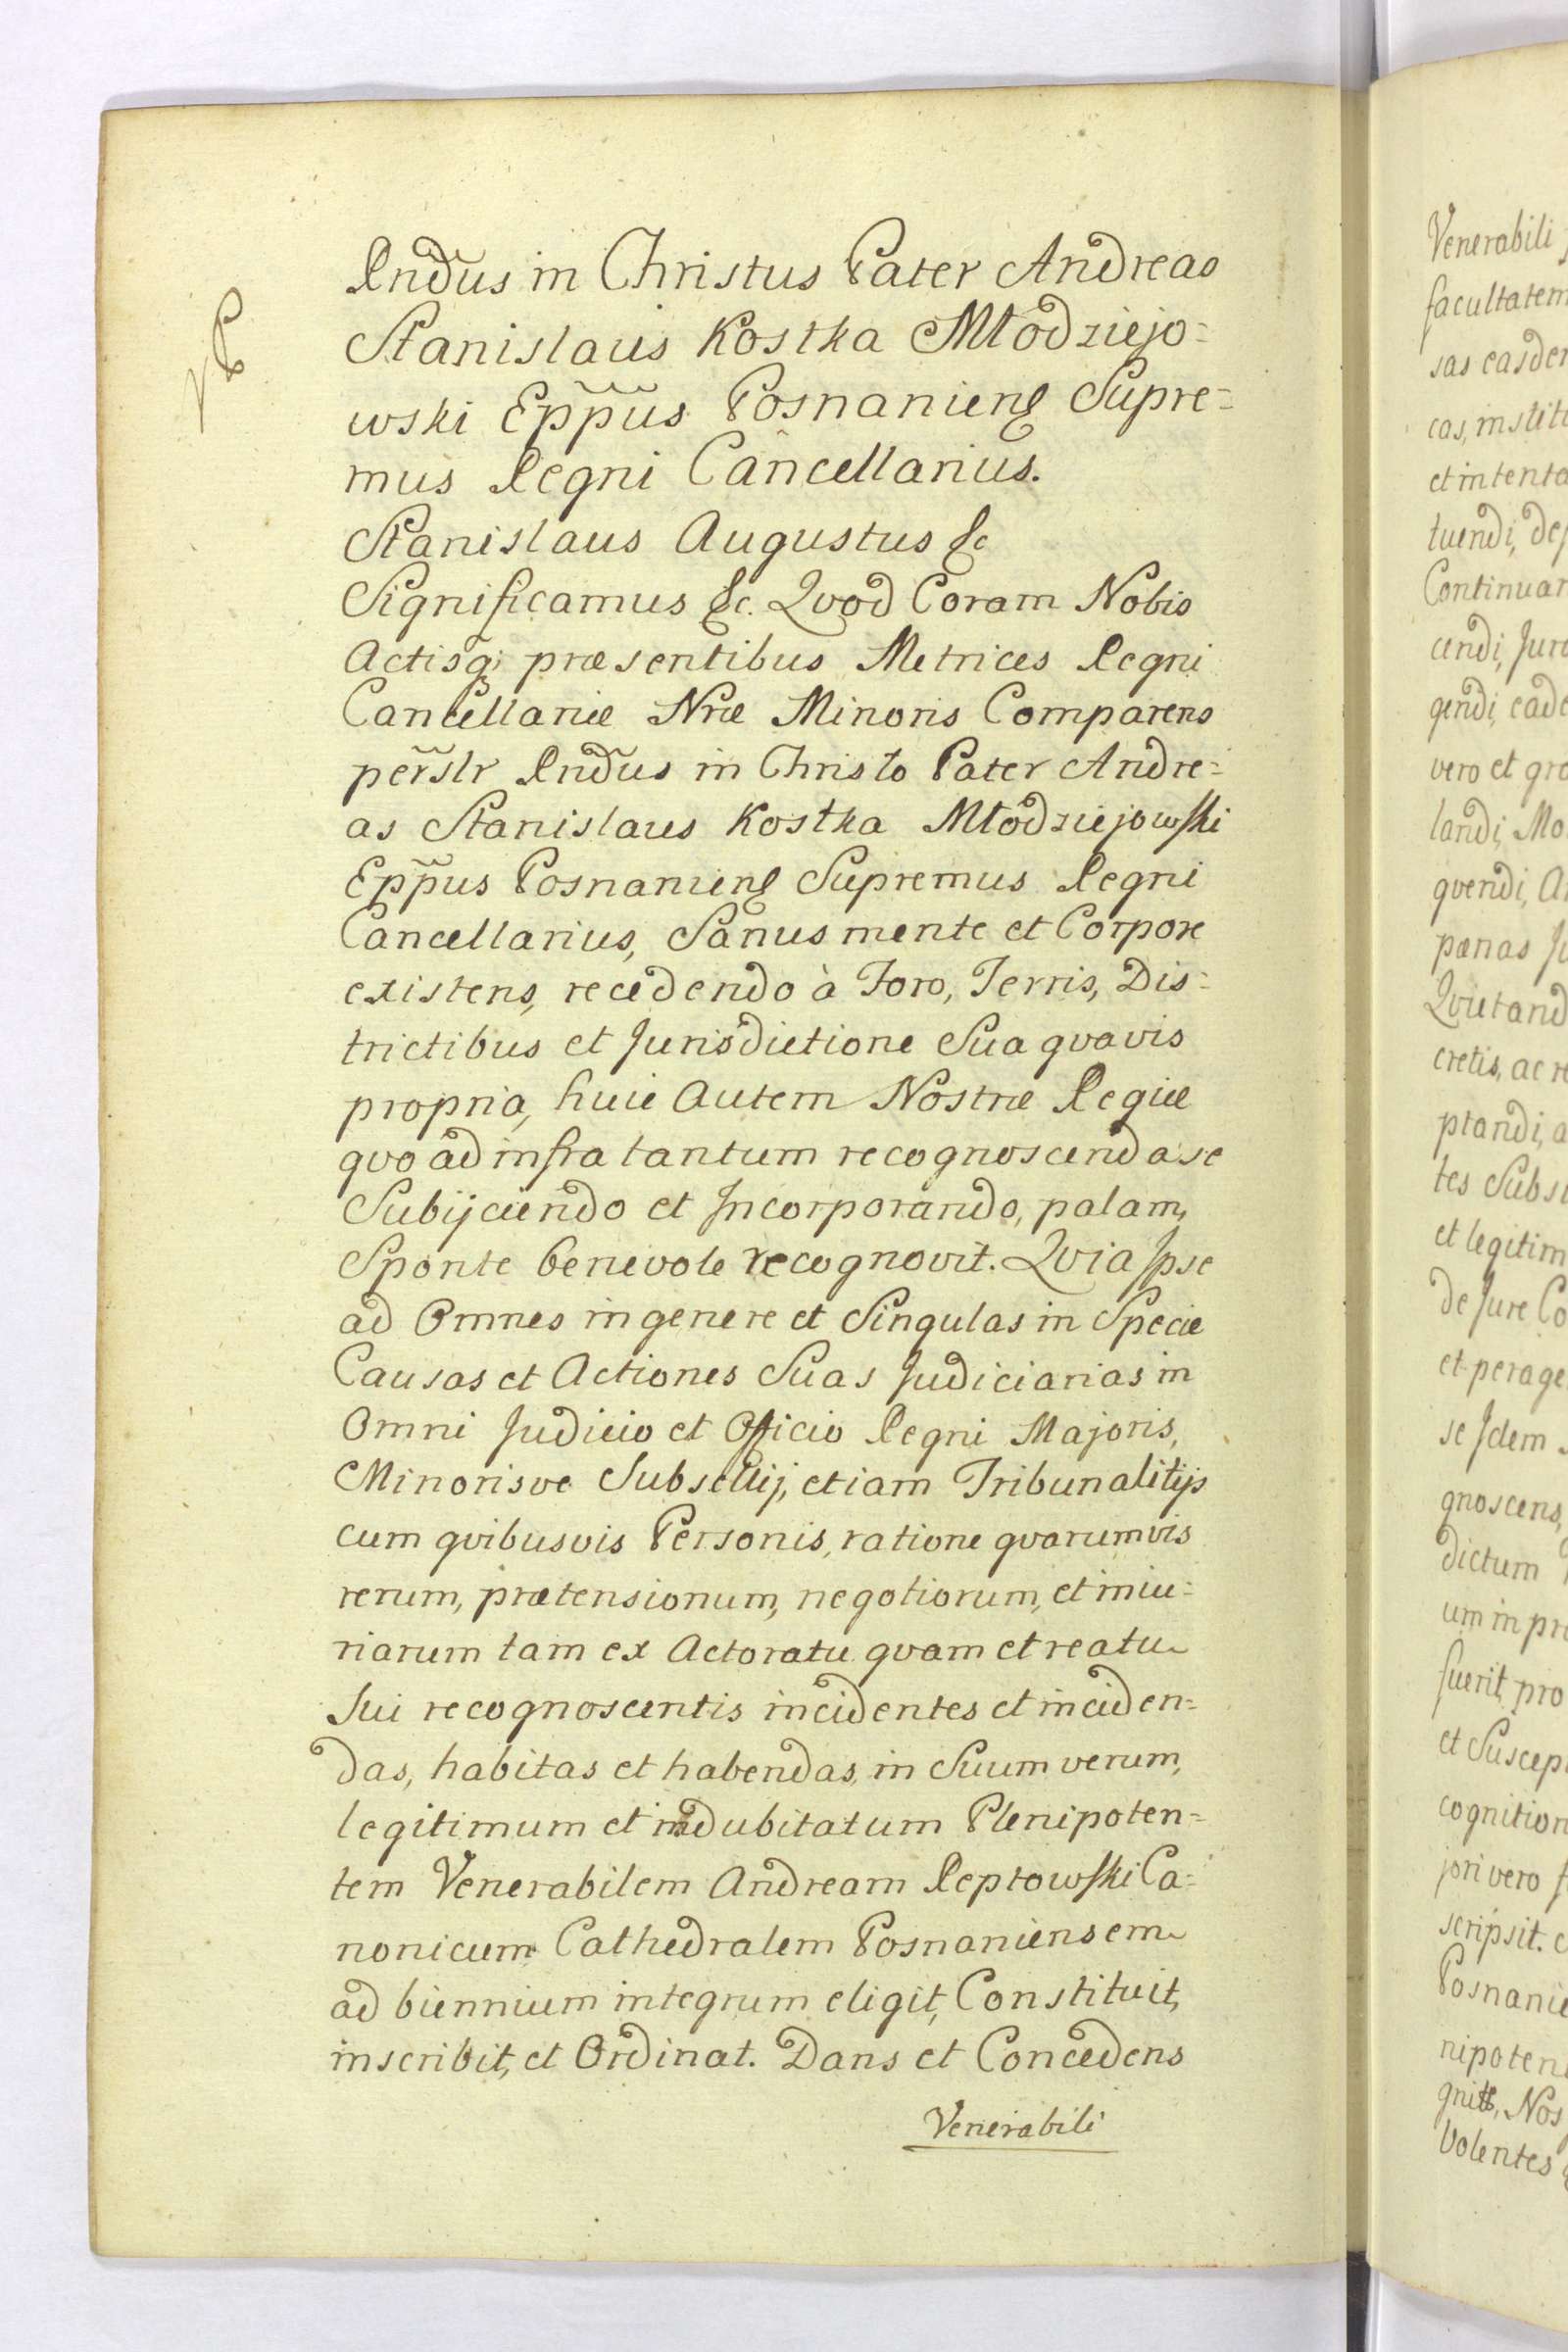 Rndus in Christus Pater Andreas
Stanislaus Kostka Młodziejo=
wski Eppus Posnaniens Supre=
mus Regni Cancellarius.
Stanislaus Augustus &c
Significamus &c. Qvod Coram Nobis
Actisq; præsentibus Metrices Regni
Cancellariæ Nræ Minoris Comparens
perslr Rndus in Christo Pater Andre=
as Stanislaus Kostka Młodziejowski
Eppus Posnaniens Supremus Regni
Cancellarius, Sanus mente et Corpore
existens, recedendo à Foro, Terris, Dis=
trictibus et Jurisdictione Sua qvavis
propria, huic Autem Nostræ Regiæ
qvo ad infra tantum recognoscenda se
Subijciendo et Incorporando, palam,
Sponte benevole recognovit. Qvia Ipse
ad Omnes in genere et Singulas in Specie
Causas et Actiones Suas Judiciarias in
Omni Judicio et Officio Regni Majoris,
Minorisve Subsellij, etiam Tribunalitijs
cum qvibusvis Personis, ratione qvarumvis
rerum, prætensionum, negotiorum, et iniu=
riarum tam ex Actoratu qvam et reatu
Sui recognoscentis incidentes et inciden=
das, habitas et habendas, in Suum verum,
legitimum et indubitatum Plenipoten=
tem Venerabilem Andream Reptowski Ca=
nonicum Cathedralem Posnaniensem
ad biennium integrum eligit, Constituit,
inscribit, et Ordinat. Dans et Concedens
Venerabili
Venerabili
facultatem
sas easdem
cas, institu
et intenta
tuendi, def
Continuan
cendi, Jura
gendi, eade
vero et gra
landi, Mo
qvendi, A
pænas Ju
Qvietand
cretis, ac re
ptandi, a
tes Subst
et legitim
de Jure Co
et perage
se Idem
gnoscens,
dictum
um in pr
fuerit, pro
et Suscep
cognition
jori vero
scripsit.
Posnanie
nipoten
Nos
Volentes